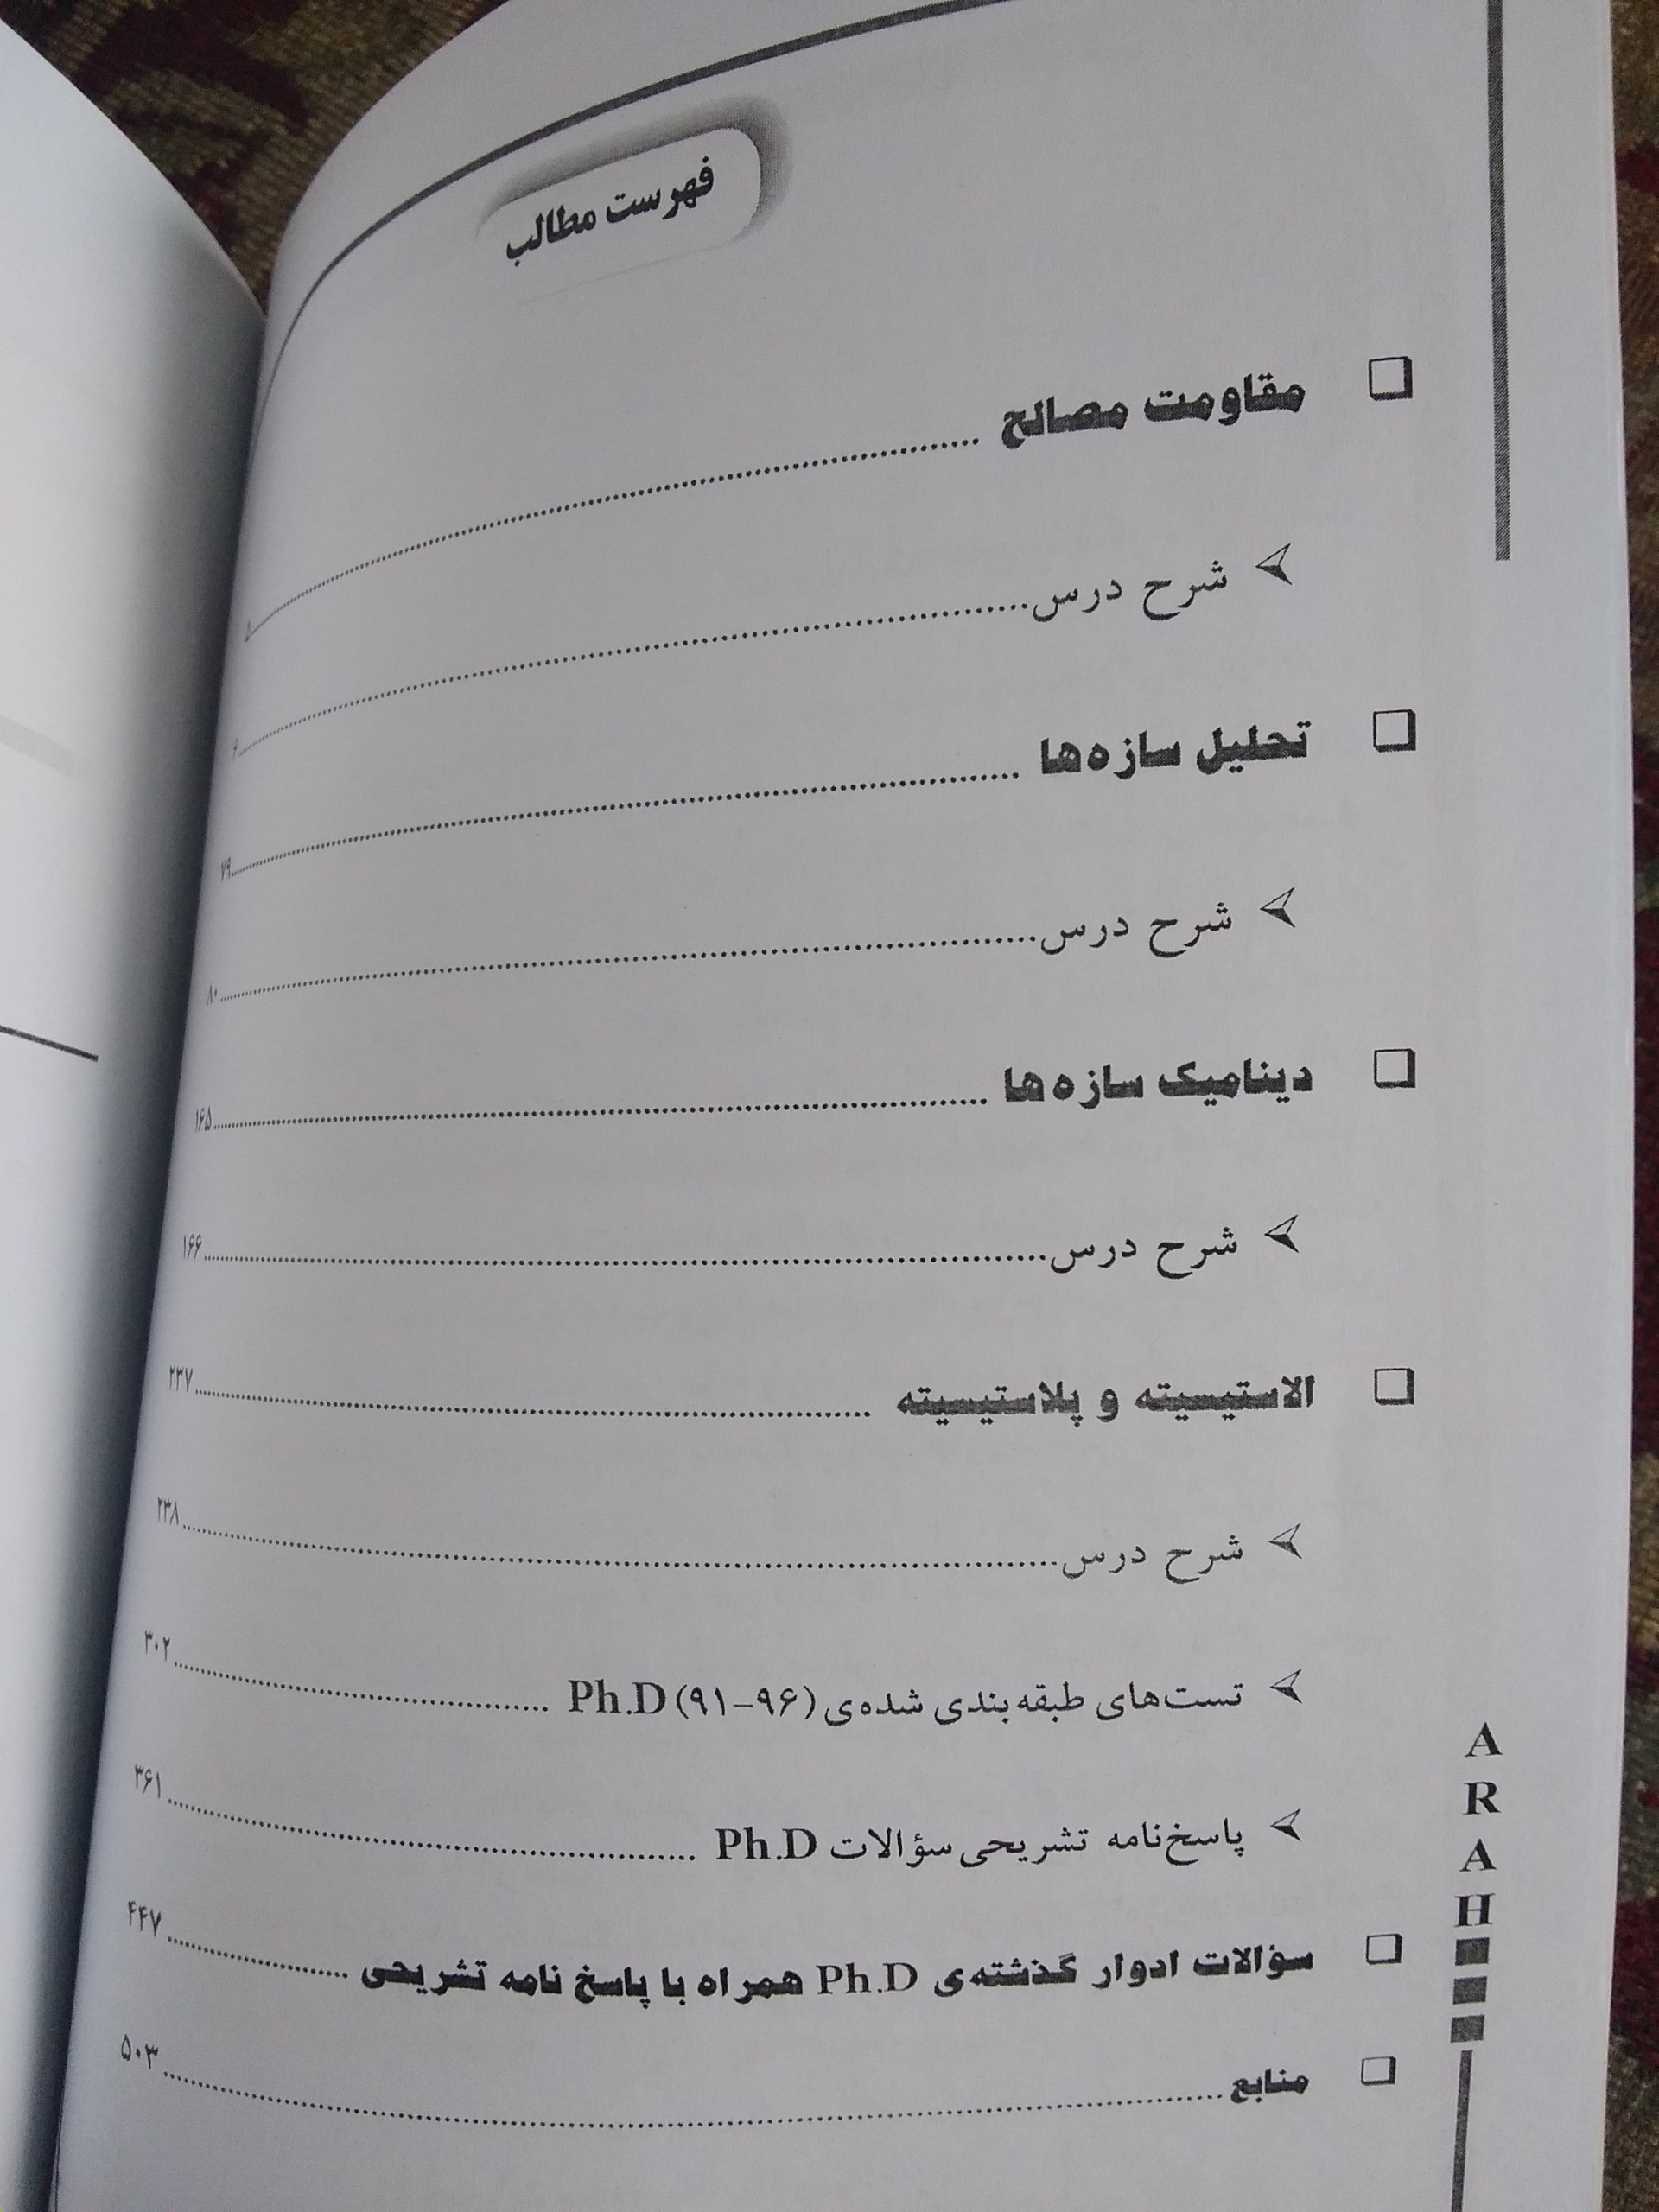 فهرست مطالب
مقاومت مصالح ........ ۵
شرح درس ........ ۶
تحلیل سازه‌ها ........ ۷۹
شرح درس ........ ۸۰
دینامیک سازه‌ها ........ ۱۶۵
شرح درس ........ ۱۶۶
الاستیسیته و پلاستیسیته ........ ۲۳۷
شرح درس ........ ۲۳۸
تست‌های طبقه‌بندی شده‌ی Ph.D (۹۱-۹۶) ........ ۳۰۲
پاسخ‌نامه تشریحی سؤالات Ph.D ........ ۳۶۱
سؤالات ادوار گذشته‌ی Ph.D همراه با پاسخ نامه تشریحی ........ ۴۴۷
منابع ........ ۵۰۳
A
R
A
H